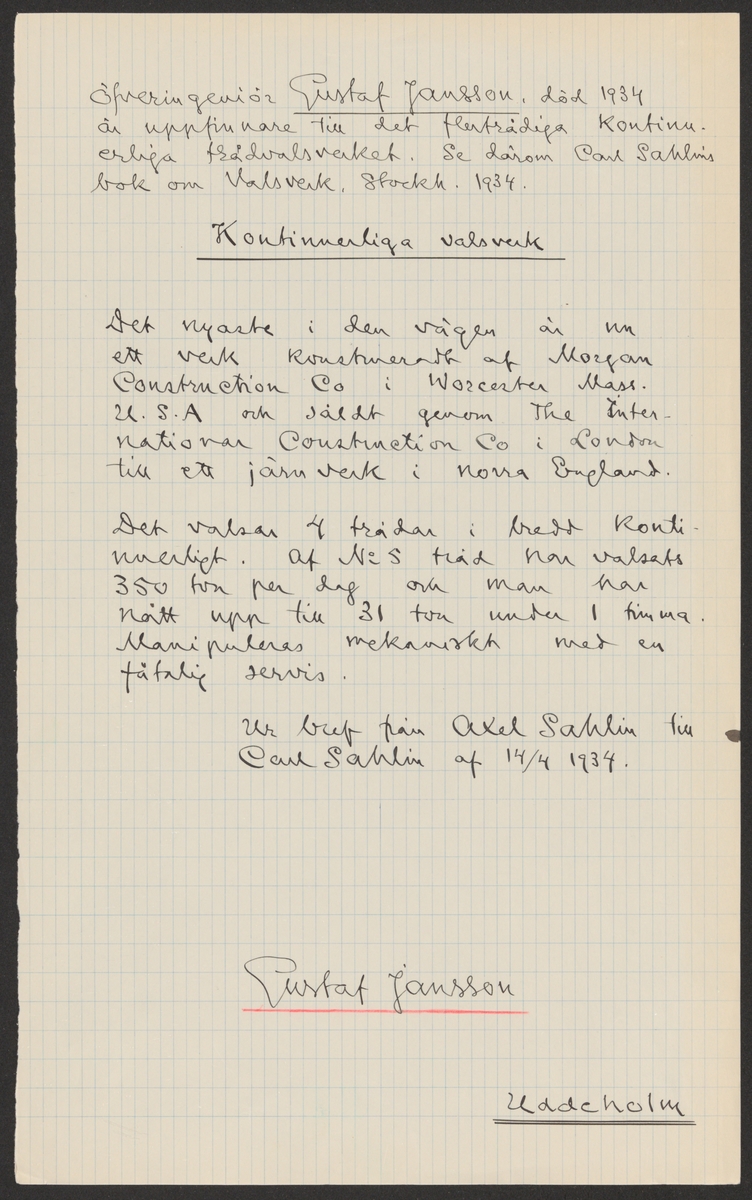 Öfveringeniör Gustaf Jansson, död 1934
är uppfinnare till det flertrådiga Kontinu-
erliga trådvalsverket. Se därom Carl Sahlins
bok om Valsverk, Stockh. 1934.
Kontinuerliga valsverk
Det nyaste i den vägen är nu
ett verk konstrueradt af Morgan
Construction Co i Worcester Mass.
U.S.A och såldt genom The Inter-
national Construction Co i London
till ett järnverk i norra England.
Det valsar 4 trådar i bredd konti-
nuerligt. Af No 5 tråd har valsats
350 ton per dag och man har
nått upp till 31 ton under 1 timma.
Manipuleras mekaniskt med en
fåtalig servis.
Ur bref från Axel Sahlin till
Carl Sahlin af 14/4 1934.
Gustaf Jansson
Uddeholm